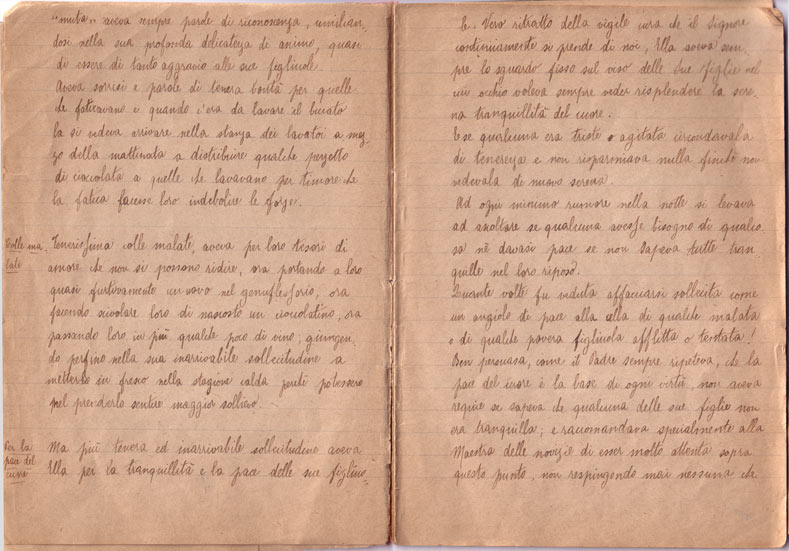 "muta" aveva sempre parole di riconoscenza, umilian-
dosi nella sua profonda delicatezza di animo, quasi
di essere di tanto aggravio alle sue figliuole.
Aveva sorrisi e parole di tenera bontà per quelle
che faticavano e quando c'era da lavare il bucato
la si vedeva arrivare nella stanza dei lavatoi a mez-
zo della mattinata a distribuire qualche pezzetto
di cioccolata a quelle che lavavano per timore che
la fatica facesse loro indebolire le forze.
Colle ma-
late
Tenerissima colle malate, aveva per loro tesori di
amore che non si possono ridire, ora portando a loro
quasi furtivamente un uovo nel genuflessorio, ora
facendo scivolare loro di nascosto un cioccolatino, ora
passando loro in più qualche poco di vino, giungen-
do perfino nella sua inarrivabile sollecitudine a
metterlo in fresco nella stagione calda perché potessero
nel prenderlo sentire maggior sollievo.
Per la
pace del
cuore
Ma più tenera ed inarrivabile sollecitudine aveva
Ella per la tranquillità e la pace delle sue figliuo-
le. Vero ritratto della vigile cura che il Signore
continuamente si prende di noi, Ella aveva sem-
pre lo sguardo fisso sul viso delle sue figlie nel
cui occhio voleva sempre veder risplendere la sere-
na tranquillità del cuore.
E se qualcuna era triste o agitata circondavala
di tenerezza e non risparmiava nulla finché non
vedevala di nuovo serena.
Ad ogni minimo rumore nella notte si levava
ad ascoltare se qualcuna avesse bisogno di qualco
sa nè davasi pace se non sapeva tutte tran
quille nel loro riposo.
Quante volte fu veduta affacciarsi sollecita come
un angiolo di pace alla cella di qualche malata
o di qualche povera figliuola afflitta o tentata!
Ben persuasa, come il Padre sempre ripeteva, che la
pace del cuore è la base di ogni virtù, non aveva
requie se sapeva che qualcuna delle sue figlie non
era tranquilla; e raccomandava specialmente alla
Maestra delle novizie di esser molto attenta sopra
questo punto, non respingendo mai nessuna che